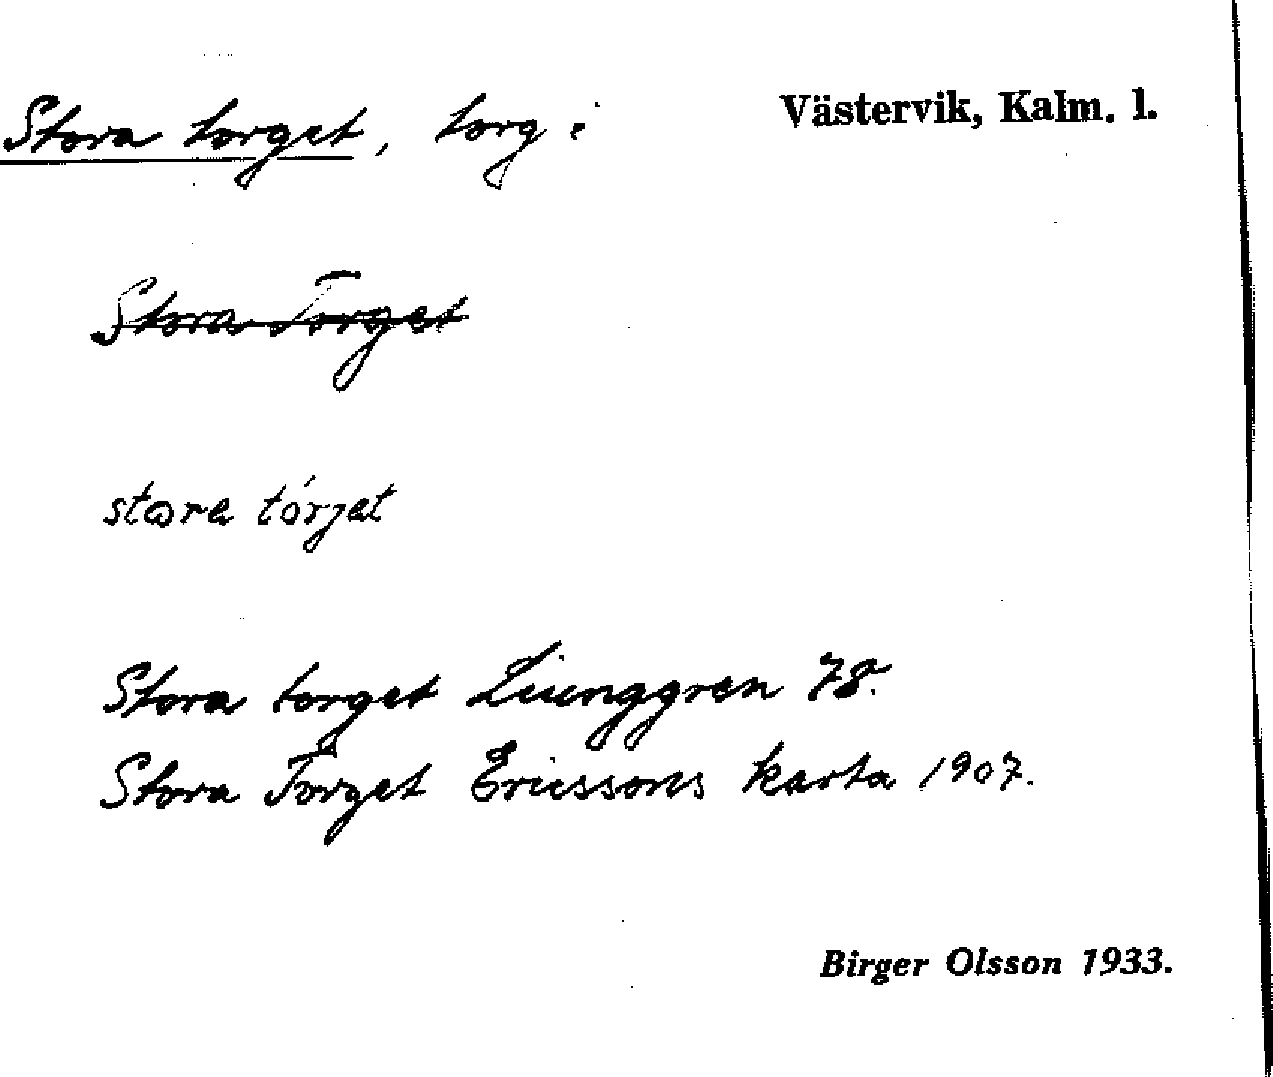 Stora torget, torg i Västervik, Kalm. l.
Stora Torget
stora tórjet
Stora torget Liunggren 78.
Stora Torget Ericssons karta 1907.
Birger Olsson 1933.